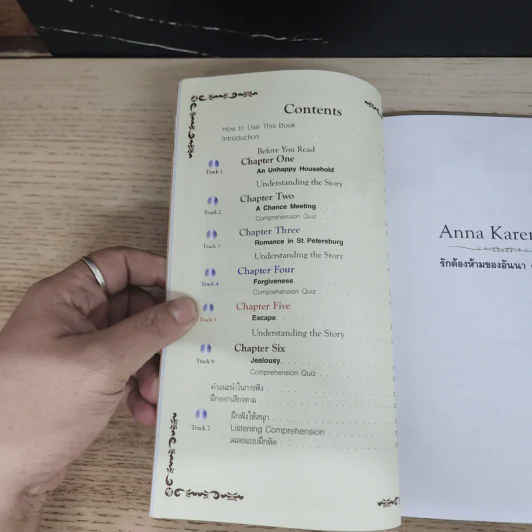 Contents
How to Use This Book
Introduction
Before You Read
Chapter One
Track 1
An Unhappy Household
Understanding the Story
Chapter Two
Track 2
A Chance Meeting
Comprehension Quiz
Chapter Three
Track 3
Romance in St. Petersburg
Understanding the Story
Chapter Four
Track 4
Forgiveness
Comprehension Quiz
Chapter Five
Track 5
Escape
Understanding the Story
Chapter Six
Track 6
Jealousy
Comprehension Quiz
คำแนะนำในการฟัง
ฝึกออกเสียงตาม
ฝึกฟังให้สนุก
Track 7
Listening Comprehension
เฉลยแบบฝึกหัด
Anna Karen
รักต้องห้ามของอันนา